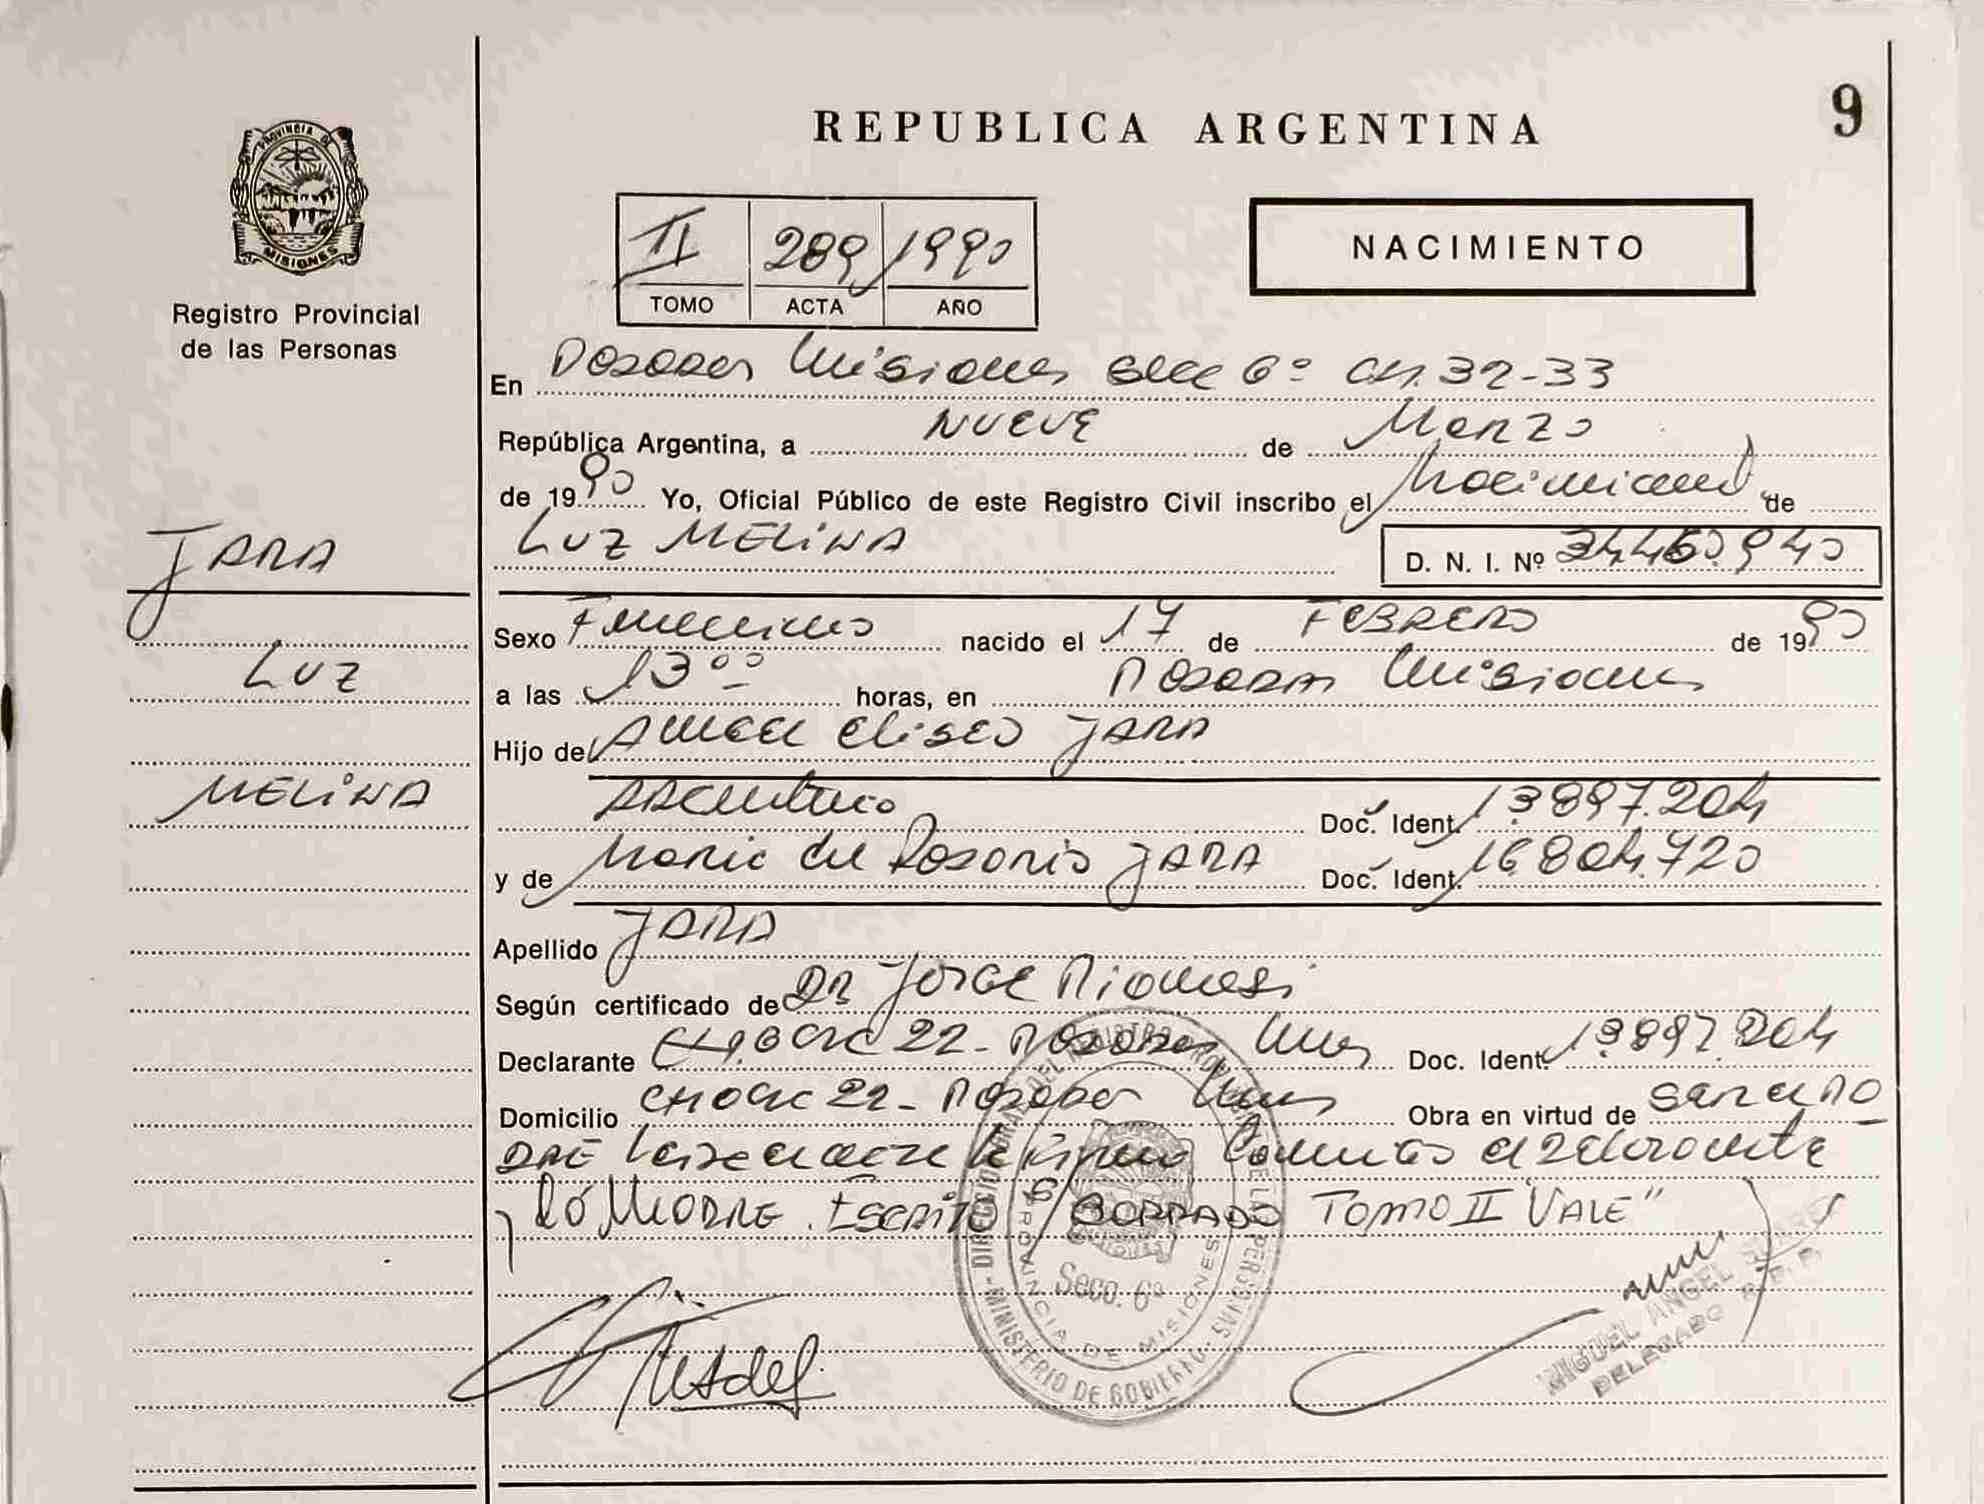 REPUBLICA ARGENTINA
9
PROVINCIA DE
MISIONES
Registro Provincial
de las Personas
II 289 1990
TOMO ACTA AÑO
NACIMIENTO
En Posadas Misiones Secc 6º CH. 32-33
República Argentina, a NUEVE de Marzo
de 1990 Yo, Oficial Público de este Registro Civil inscribo el Nacimiento de
LUZ MELINA D. N. I. Nº 34.460.940
JARA
LUZ
MELINA
Sexo Femenino nacido el 17 de FEBRERO de 1990
a las 13ºº horas, en Posadas Misiones
Hijo de Eliseo JARA
Argentino Doc. Ident. 13.897.204
y de Maria del Rosario JARA Doc. Ident. 16.804.720
Apellido JARA
Según certificado de DR Jorge
Declarante 22 - Posadas Mnes Doc. Ident. 13.897.204
Domicilio 22 - Posadas Mnes Obra en virtud de
declarante
MADRE. Escrito S/ BORRADO TOMO II "VALE"
DIRECCION GRAL DEL REGISTRO PROVINCIAL DE LAS PERSONAS - MINISTERIO DE GOBIERNO
PROVINCIA DE MISIONES
Secc. 6º
MIGUEL ANGEL
DELEGADO R. P. P.